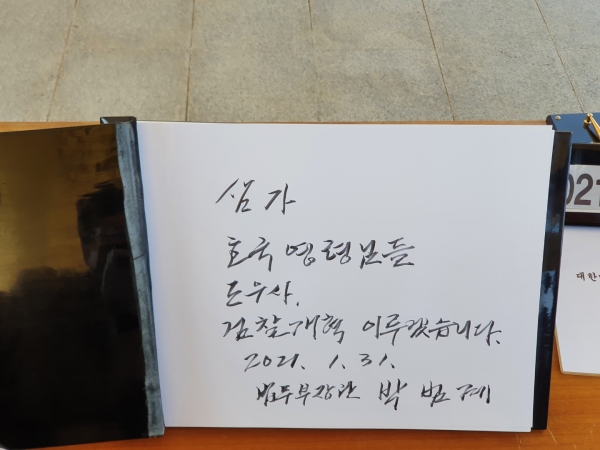 삼가
호국영령님들
도우사.
검찰개혁 이루겠습니다.
2021. 1. 31.
법무부장관 박 범 계
021
대한